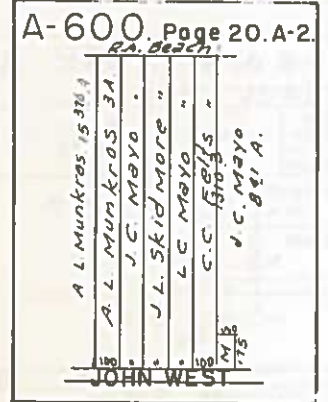 A-600. Page 20. A-2.
R.A. Beach
A. L. Munkros 15 376 A
A. L. Munkros 3A.
J. C. Mayo "
J. L. Skidmore "
L C Mayo "
C. C. Felts "
1310
J. C. Mayo
841 A.
M
50
175
100
"
"
"
100
JOHN WEST